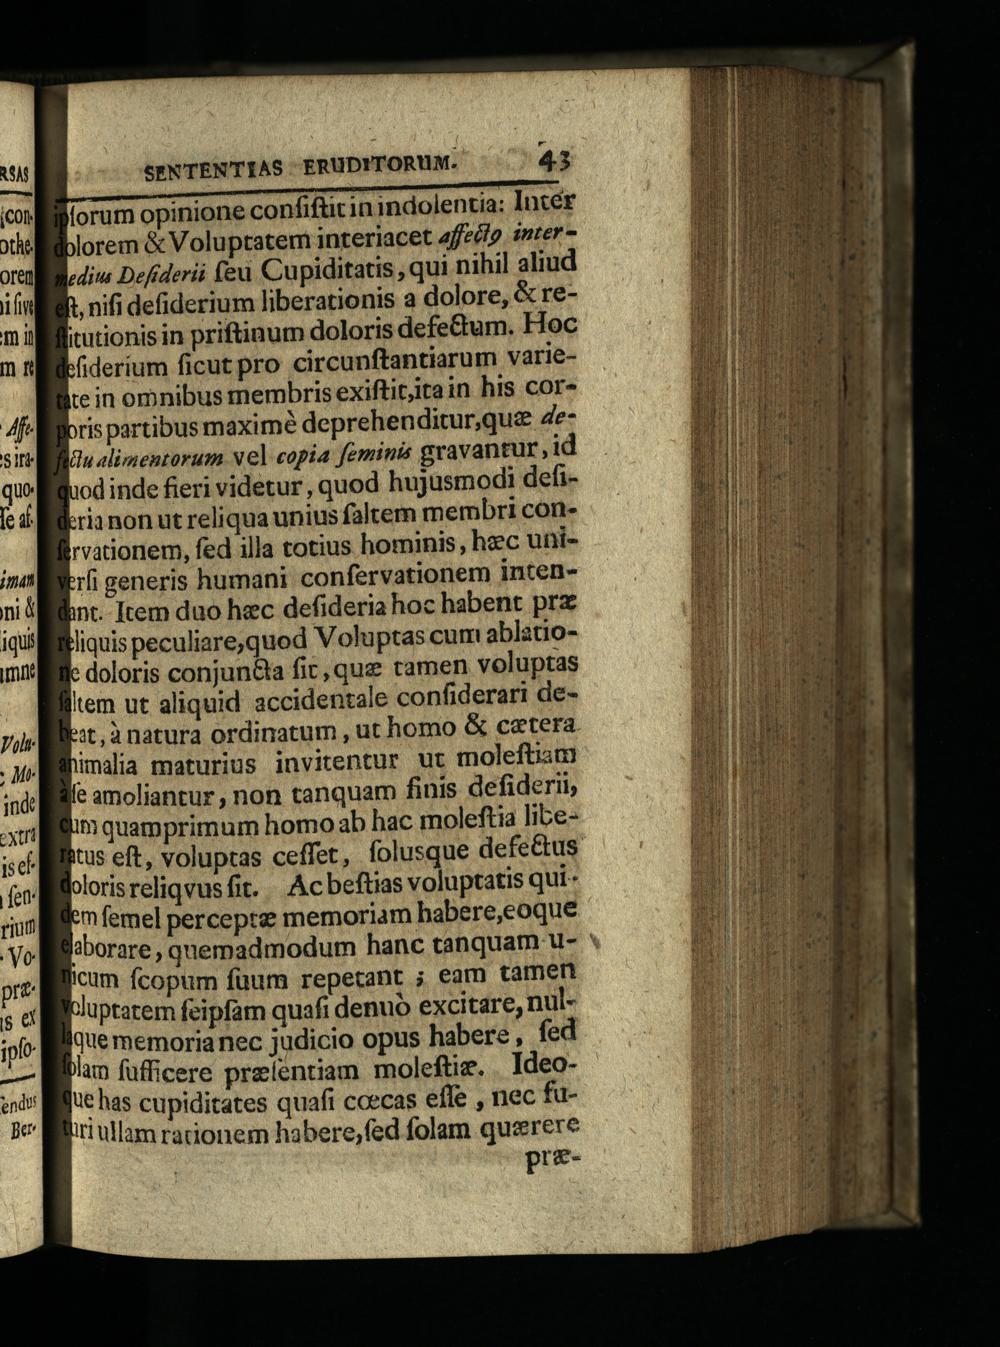 SENTENTIAS ERUDITORUM. 43
ipſorum opinione conſiſtit in indolentia: Inter
dolorem & Voluptatem interiacet affectꝰ inter-
medius Deſiderii ſeu Cupiditatis, qui nihil aliud
eſt, niſi deſiderium liberationis a dolore, & re-
ſtitutionis in priſtinum doloris defectum. Hoc
deſiderium ſicut pro circunſtantiarum varie-
tate in omnibus membris exiſtit, ita in his cor-
poris partibus maximè deprehenditur, quæ de-
fectu alimentorum vel copia ſeminis gravantur, id
quod inde fieri videtur, quod hujusmodi deſi-
deria non ut reliqua unius ſaltem membri con-
ſervationem, ſed illa totius hominis, hæc uni-
verſi generis humani conſervationem inten-
dant. Item duo hæc deſideria hoc habent præ
reliquis peculiare, quod Voluptas cum ablatio-
ne doloris conjuncta ſit, quæ tamen voluptas
ſaltem ut aliquid accidentale conſiderari de-
beat, à natura ordinatum, ut homo & cætera
animalia maturius invitentur ut moleſtiam
à ſe amoliantur, non tanquam finis deſiderii,
cum quamprimum homo ab hac moleſtia libe-
ratus eſt, voluptas ceſſet, ſolusque defectus
doloris reliqvus ſit. Ac beſtias voluptatis qui-
dem ſemel perceptæ memoriam habere, eoque
elaborare, quemadmodum hanc tanquam u-
nicum ſcopum ſuum repetant; eam tamen
voluptatem ſeipſam quaſi denuò excitare, nul-
laque memoria nec judicio opus habere, ſed
ſolam ſufficere præſentiam moleſtiæ. Ideo-
que has cupiditates quaſi cœcas eſſe, nec fu-
turi ullam rationem habere, ſed ſolam quærere
præ-